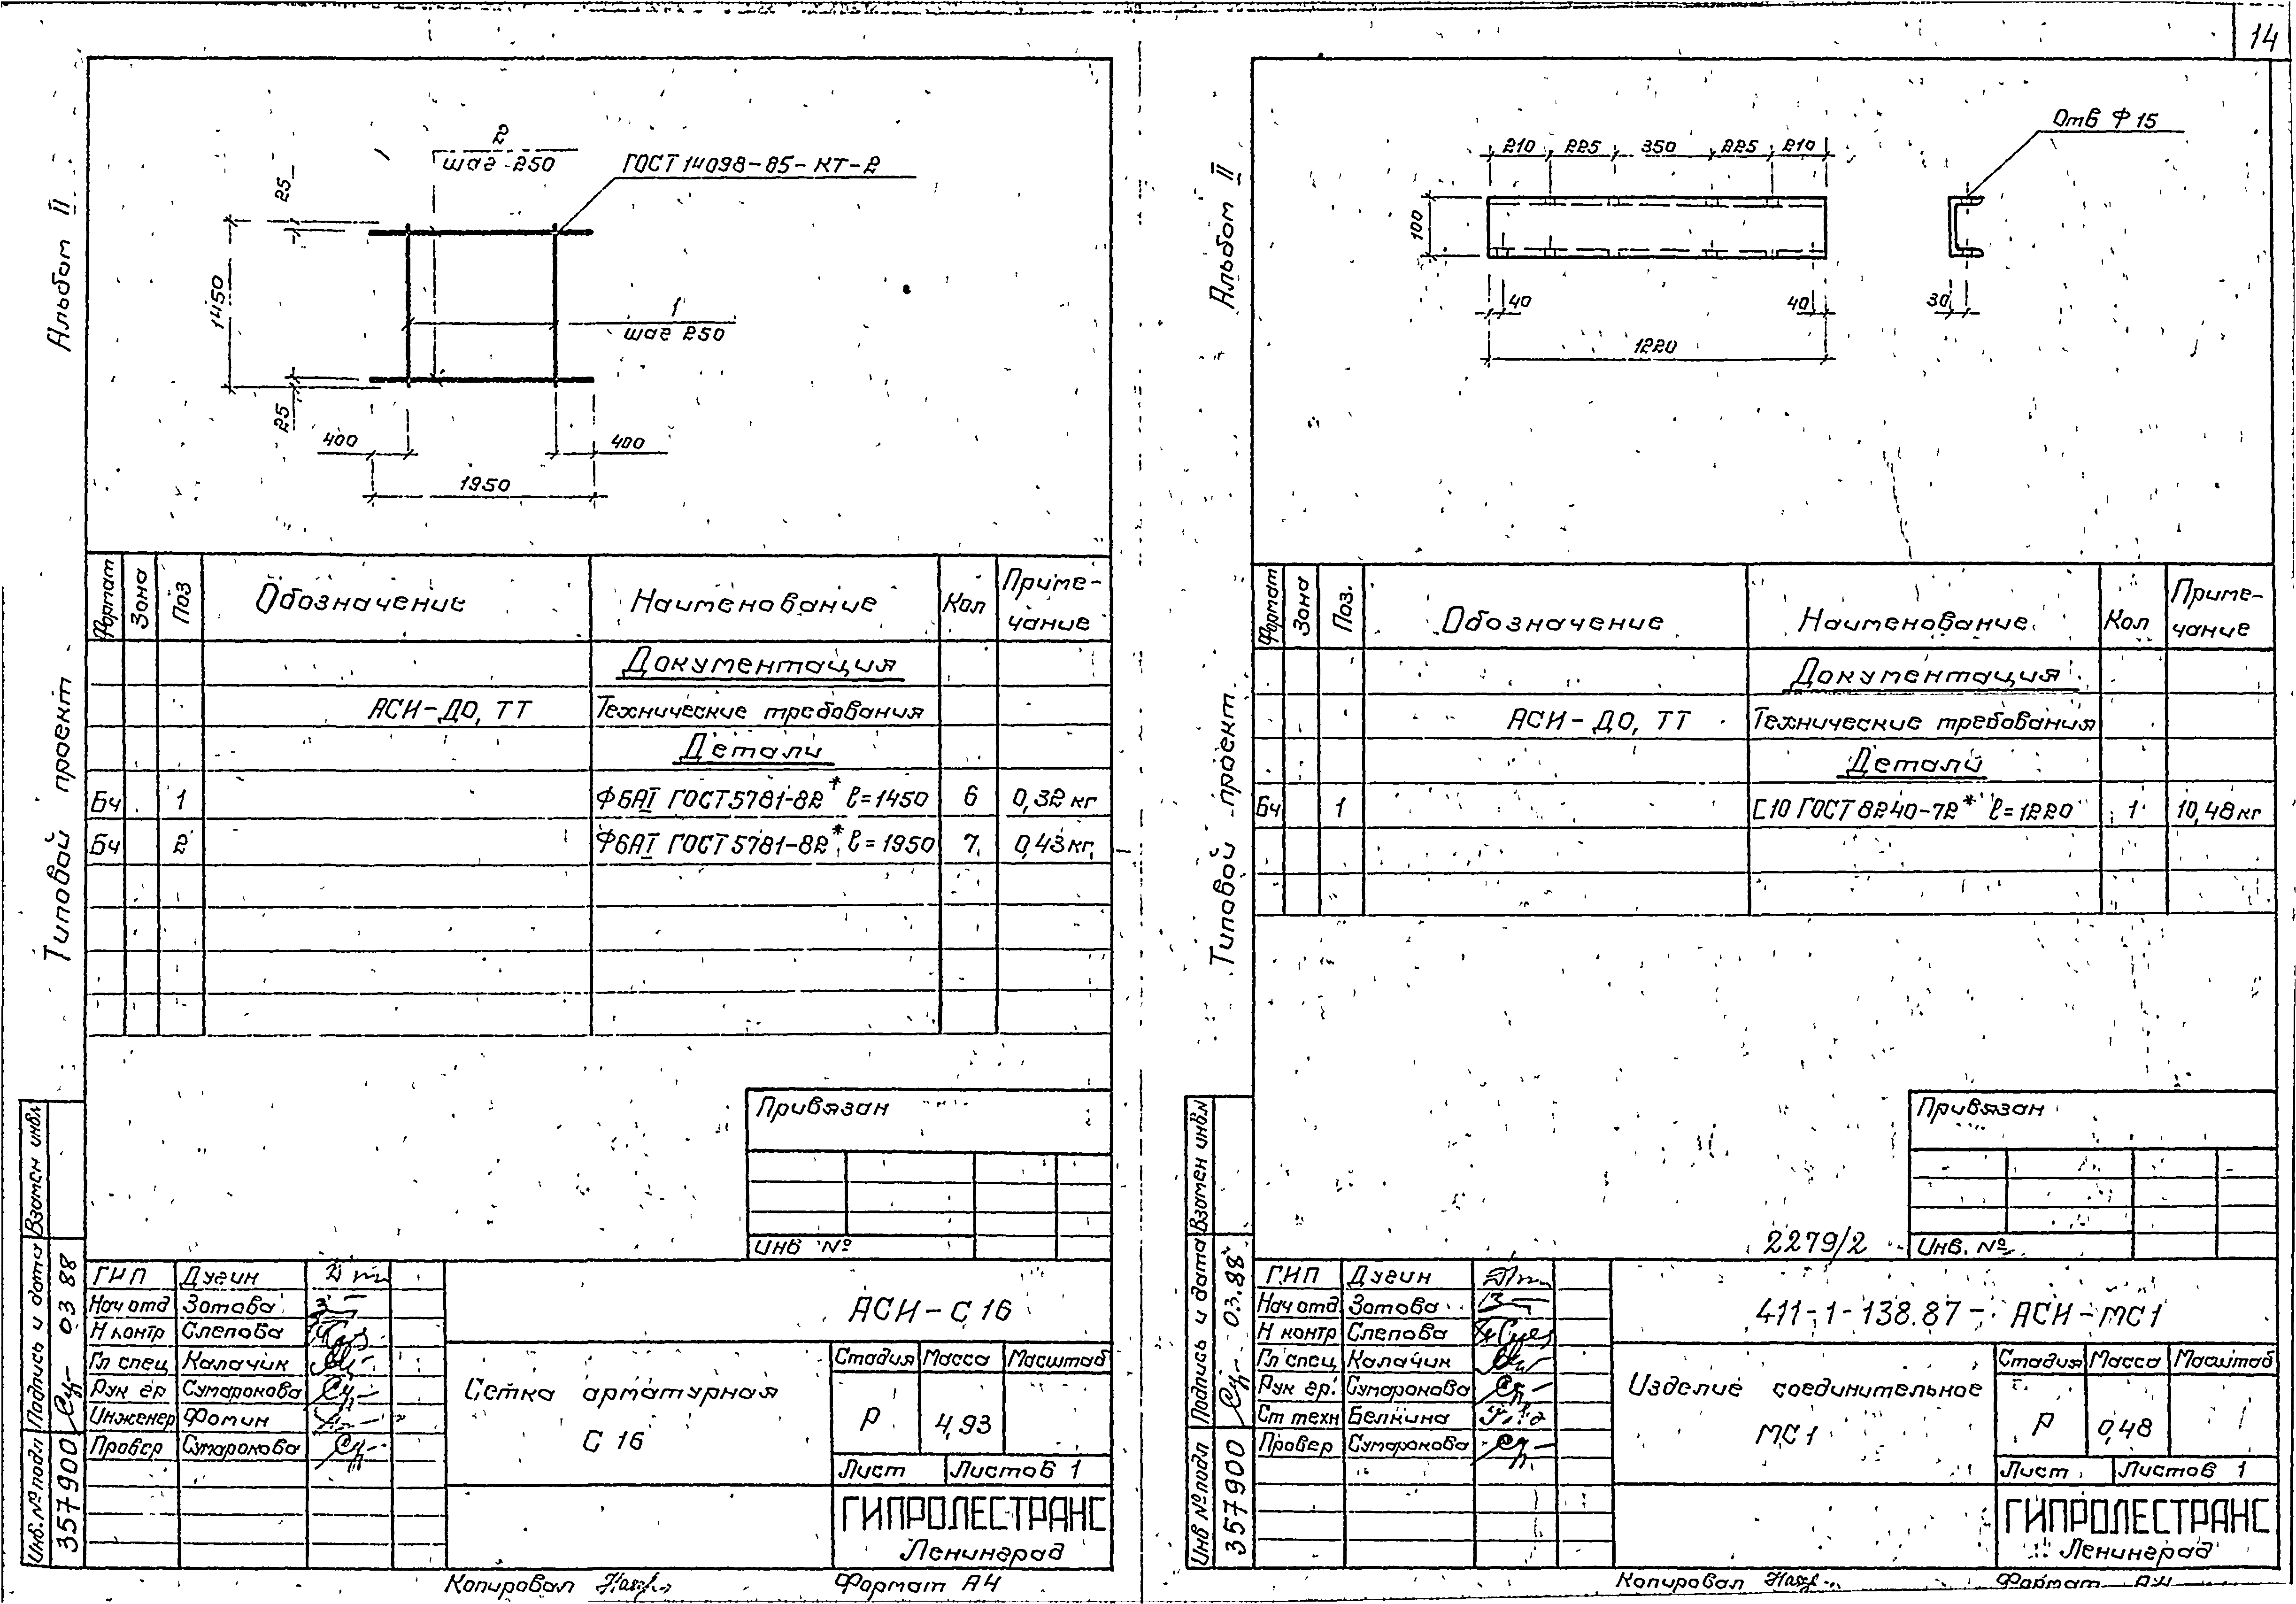 14
Альбом II
Типовой проект
2
шаг 250
ГОСТ 14098-85-КТ-2
25
1450
1
шаг 250
25
400
400
1950
Формат Зона Поз Обозначение Наименование Кол Приме-
чание
Документация
АСИ-ДО, ТТ Технические требования
Детали
Бч 1 Ф6АI ГОСТ 5781-82* l=1450 6 0,32 кг
Бч 2 Ф6АI ГОСТ 5781-82* l=1950 7 0,43 кг
Привязан
Инв №
Взамен инв.№
Подпись и дата 03 88
Инв. № подл 357900
ГИП Дугин
Нач отд Зотова
Н контр Слепова
Гл спец Калачик
Рук гр Сумарокова
Инженер Фомин
Провер Сумарокова
АСИ-С 16
Сетка арматурная
С 16
Стадия Масса Масштаб
Р 4,93
Лист Листов 1
ГИПРОЛЕСТРАНС
Ленинград
Копировал Формат А4
Альбом II
Типовой проект
Отв Ф 15
210 225 350 225 210
100
40 40 30
1220
Формат Зона Поз. Обозначение Наименование Кол Приме-
чание
Документация
АСИ-ДО, ТТ Технические требования
Детали
Бч 1 [10 ГОСТ 8240-72* l=1220 1 10,48 кг
Привязан
2279/2 Инв. №
Взамен инв.№
Подпись и дата 03.88
Инв № подл 357900
ГИП Дугин
Нач отд Зотова
Н контр Слепова
Гл спец Калачик
Рук гр. Сумарокова
Ст техн Белкина
Провер Сумарокова
411-1-138.87- АСИ-МС1
Изделие соединительное
МС1
Стадия Масса Масштаб
Р 0,48
Лист Листов 1
ГИПРОЛЕСТРАНС
Ленинград
Копировал Формат А4